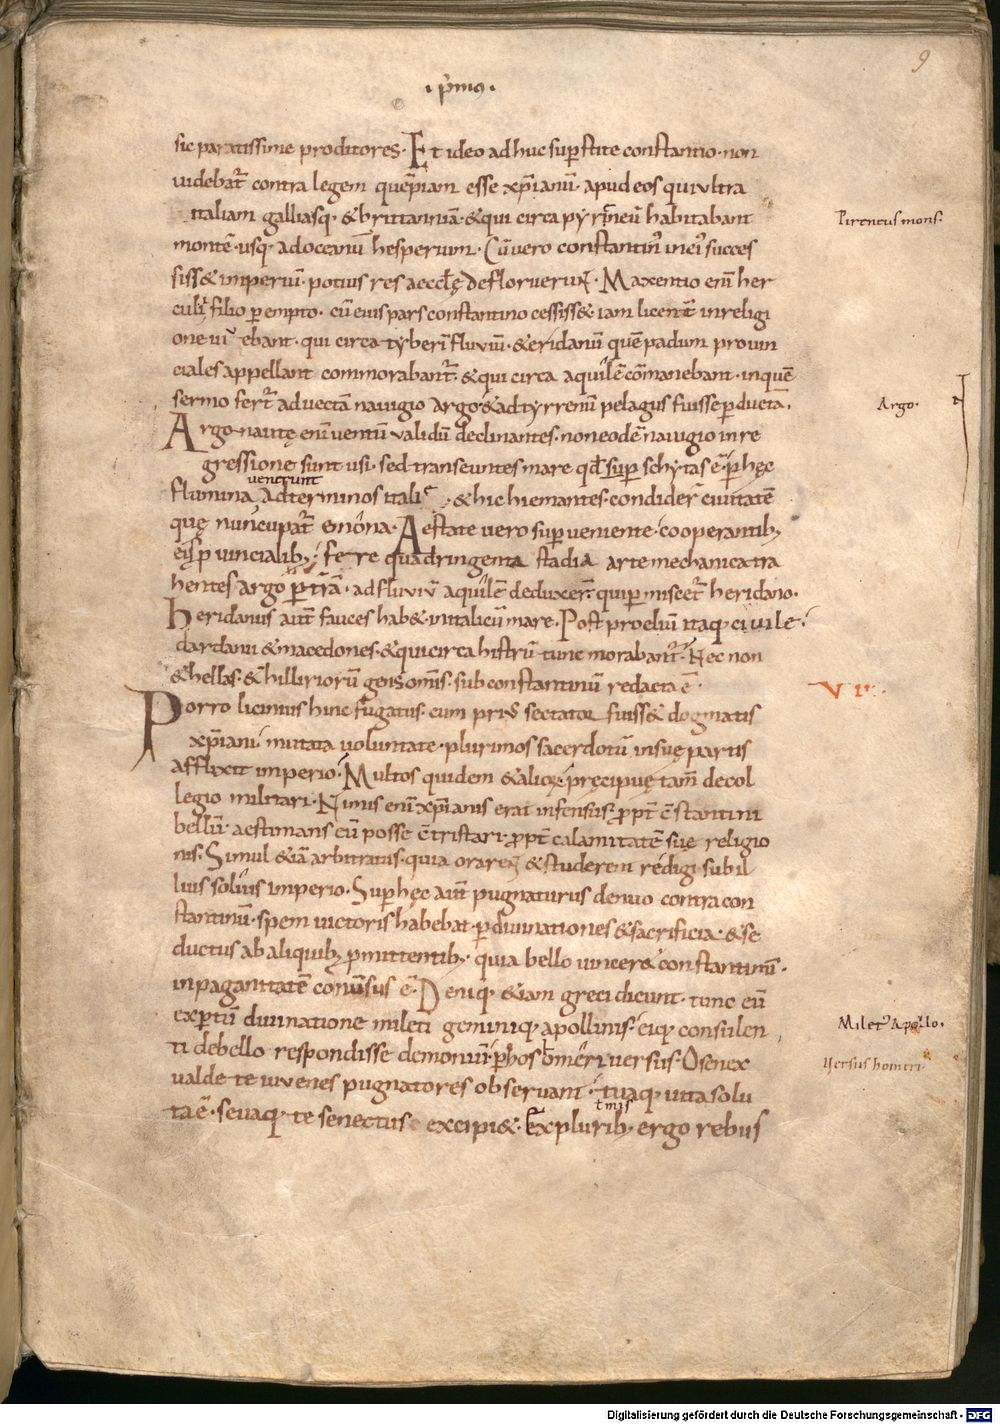 9
·p̄mꝰ·
sic paratissime proditores· Et ideo adhuc suꝑstite constantio· non
uidebat̄ contra legem quēpiam esse xp̄ianū· apud eos qui ultra
italiam galliasq· & brittanniā· & qui circa pyrineū habitabant
Pireneus mons·
montē· usq· ad oceanū hesperum· Cū vero constantinꝰ in eiꝰ succes
siss& imperiū· potius res aeccłę defloruerunt· Maxentio eni her
culii filio ꝑempto· cū eius pars constantino cessiss& iam licent̄ in religi
one uiuebant· qui circa tyberī fluviū· & eridanū quē padum provin
ciales appellant commorabant̄· & qui circa aquilē cōmanebant· in quē
sermo fert̄ advectā navigio argo· & ad tyrrenū pelagus fuisse ꝑductā·
Argo·
Argonautę eni ventū validū declinantes· non eodē navigio in re
gressione sunt usi· sed transeuntes mare qd̄ suꝑ schytas ē· ꝑ hęc
flumina venerunt ad terminos italię· & hic hiemantes· condider̄ civitatē
quę nuncupat̄ emona· Aestate vero suꝑveniente· cooperantibꝫ
eis ꝓvincialibꝫ· fere quadringenta stadia arte mechanica tra
hentes argo ꝑ trā· ad fluviū aquilē deduxer̄· qui ꝑmiscet̄ heridano·
heridanus aut̄ fauces hab& in italicū mare· Post proeliū itaq· civile·
dardani & macedones· & qui circa histrū tunc morabant̄· Nec non
& hellas· & hilliriorū gens omīs· sub constantinū redacta ē·
VII·
Porro licinius hinc fugatus· cum priꝰ sectator fuiss& dogmatis
xp̄iani· mutata voluntate· plurimos sacerdotū in suę partis
afflixit imperio· Multos quidem & alios· pręcipuę tam̄ de col
legio militari· Nimis eni xp̄ianis erat infensus· ꝓpt̄ cstantini
bellū· aestimans eū posse ctristari· ꝓpt̄ calamitatē suę religio
nis· Simul & iā arbitratus· quia orarent & studerent redigi sub il
lius solius imperio· Suꝑ hęc aut̄ pugnaturus denuo contra con
stantinū· spem victoris habebat· ꝑ divinationes & sacrificia· & se
ductus ab aliquibꝫ ꝓmittentibꝫ· quia bello vincer& constantinū·
in paganitatē conversus ē· Deniq· & iam greci dicunt· tunc eū
expertū divinatione mileti geminiq· apollinis· eiq· consulen
Milet̄ Apollo·
ti de bello respondisse demoniū· ꝑ hos homeri versus· O senex
Versus homeri·
valde te ivvenes pugnatores observant· tuaq· vita solu
ta ē· sevaq· te senectus excipi&· Ex pluribꝫ tmis ergo rebus
Digitalisierung gefördert durch die Deutsche Forschungsgemeinschaft - DFG